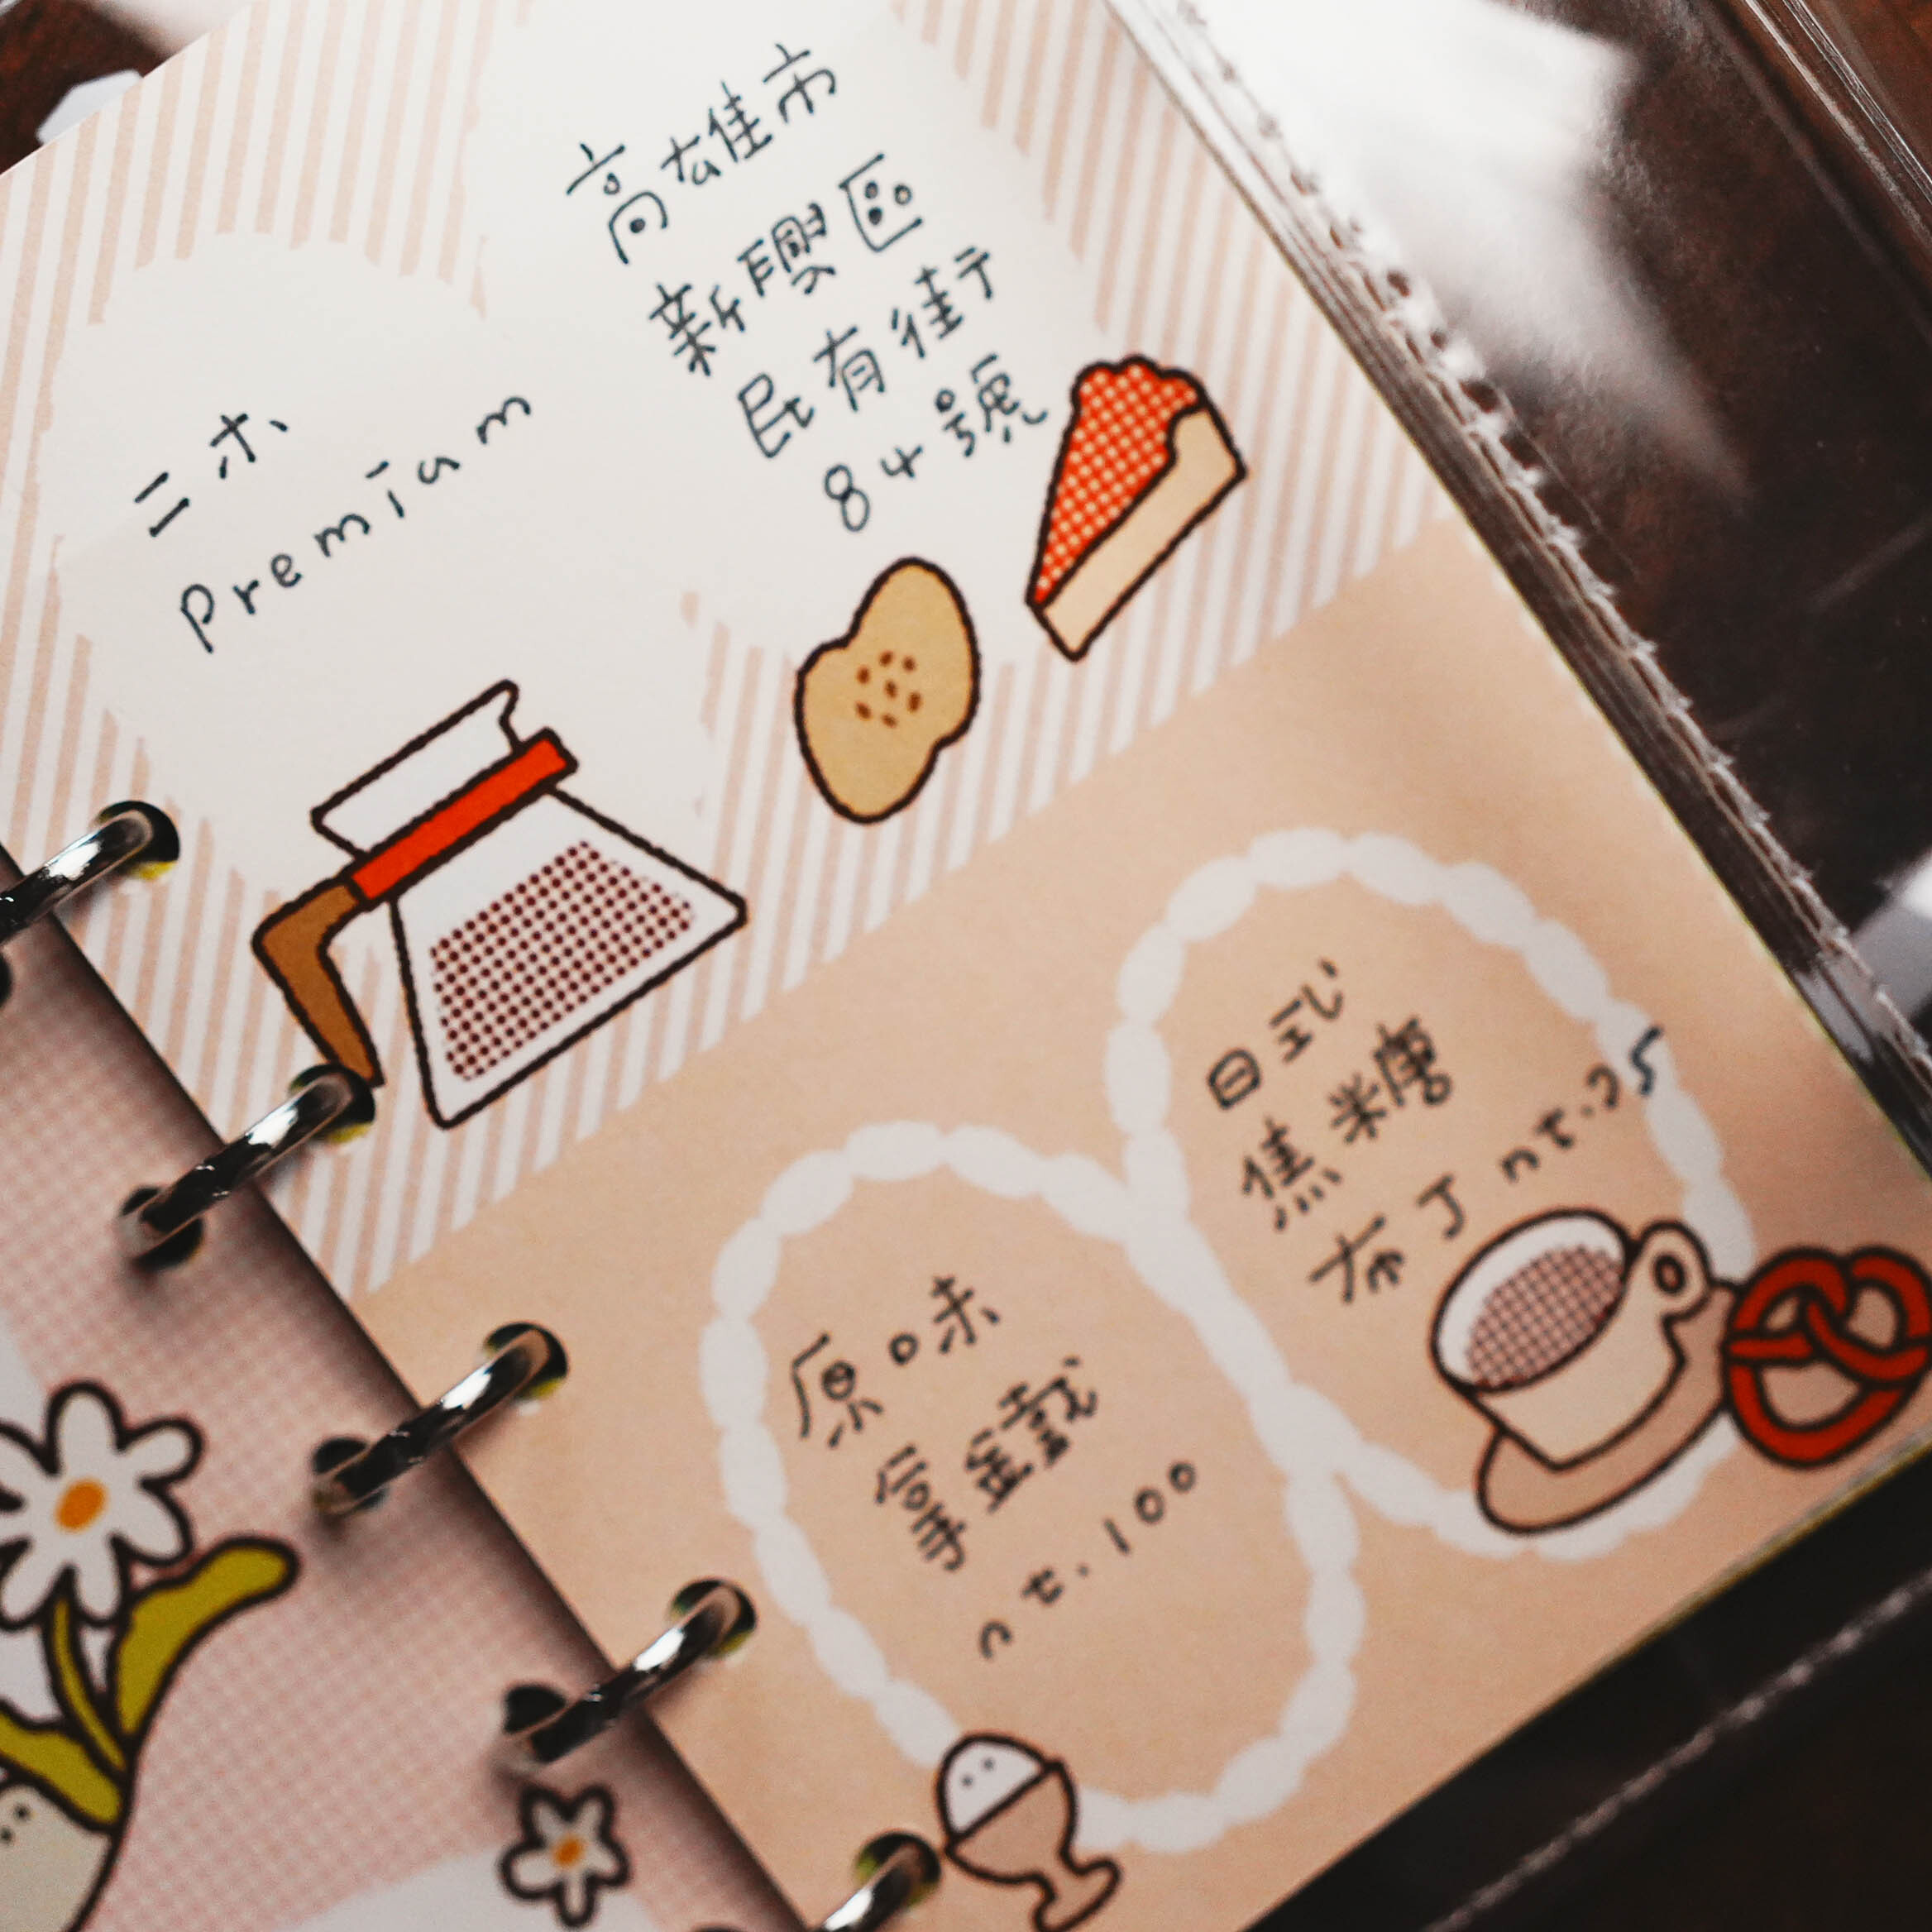 高雄市
新興區
民有街
84號
二木
Premium
日式
焦糖
布丁
原味
拿鐵
nt.100